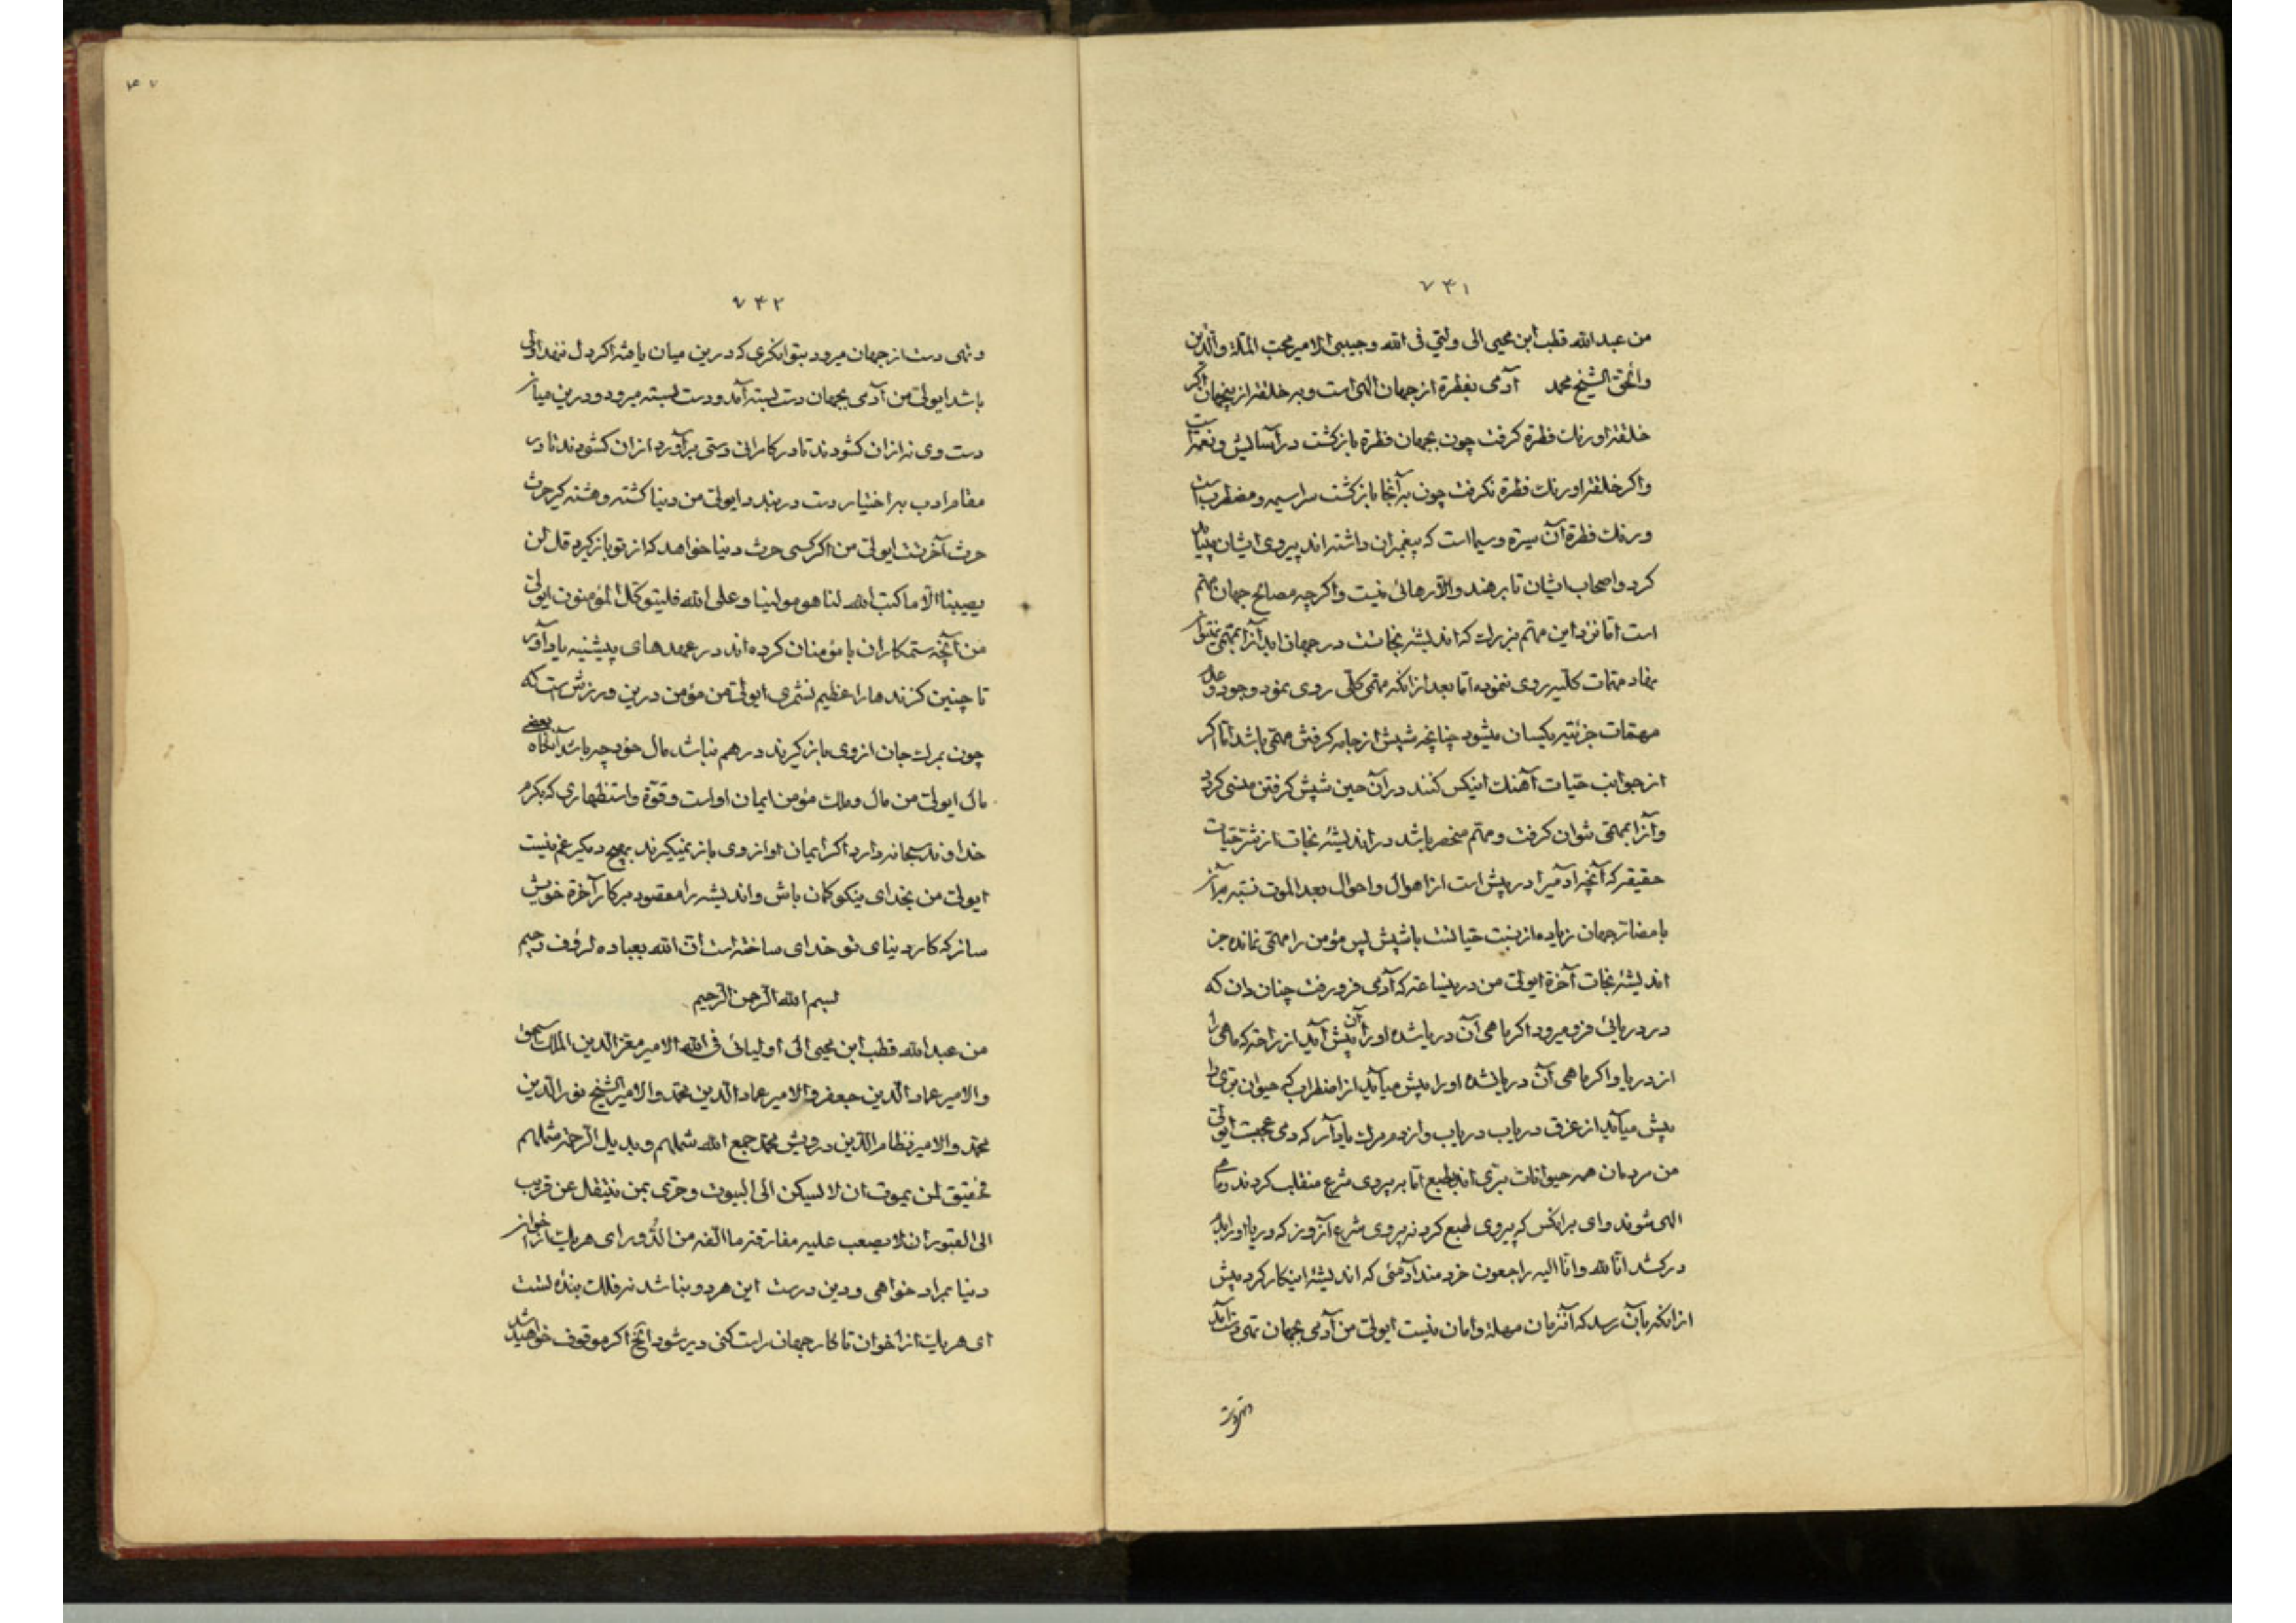 ۷۴۱
من عبدالله قطب ابن محیی الی ولیّی فی الله وحبیبی الامیر محب الملة والدّین
والحق الشیخ محمد آدمی بفطرة از جهان الهی است و به خلقة از اینجهان اگر
خلقة او رنك فطرة كرفت چون بجهان فطرة بازكشت در آسایش و نعیم است
واكر خلقة او رنك فطرة نكرفت چون به آنجا بازكشت سراسیمه و مضطرب است
و رنك فطرة آن سیرة و سیما است كه پیغمبران داشته اند پیروی ایشان بباید
كرد و اصحاب ایشان تا برهند والّا رهائی نیست و اكرچه مصالح جهان مهم
است امّا نزد این مهم بزرك كه اندیشۀ نجاتست در جهان ابد آنرا بمهمی نتوان
نهاد مهمات كلّیه روی ننموده امّا بعد از انكه مهمی كلّی روی نمود وجود و عدم
مهمّات جزئیه یكسان میشود چنانچه شپش از جامه كرفتن مهمّی باشد امّا اكر
از جوانب حیّات آهنك اینكس كنند در آن حین شپش كرفتن منسی كردد
و آنرا بمهمّی نتوان كرفت و مهّم منحصر باشد در اندیشۀ نجات از شرّ حیّات
حقیقة كه آنچه آدمیرا در پیش است از اهوال و احوال بعد الموت نسبة برآن
با مضارّ جهان زیاده از نسبت حیاتست با شپش پس مؤمن را مهمّی نمانده جز
اندیشۀ نجات آخرة ایولیّ من در ینساعة كه آدمی فرو رفت چنان دان كه
در دریائی فرو میرود اكر ماهی آن دریا شده او را آن پیش آید از راحة كه ماهی را
از دریا و اكر ماهی آن دریا نشده او را پیش میآید از اضطراب كه حیوان برّی را
پیش میآید از غرق دریاب دریاب و از دم مرك یاد آر كه دمی عجبست ایولیّ
من مردمان همه حیوانات برّی اند بطبع امّا به پیروی شرع منقلب كردند و ماهی
الهی شوند وای برانكس كه پیروی طبع كرد نه پیروی شرع آنروز كه دریا او را بدم
دركشد انّا لله وانّا الیه راجعون خردمند آدمئی كه اندیشۀ اینكار كرد پیش
از انكه بآن رسد كه آنزمان مهلة و امان نیست ایولیّ من آدمی بجهان تهی دست آید
وتهی دست
۷۴۲
و تهی دست از جهان میرود بتوانكری كه درین میان یافته اكر دل ننهد اولی
باشد ایولیّ من آدمی بجهان دست بسته آمد و دست بسته میرود و درین میان
دست وی نه از ان كشودند تا در كامرانی دستی برآورد از ان كشودند تا در
مقام ادب به اختیار دست در بندد ایولیّ من دنیا كشته و هشته كیر حرث
حرث آخرتست ایولیّ من اكر كسی حرث دنیا خواهد كه از تو بازكیرد قل لن
یصیبنا الّا ما كتب الله لنا هو مولینا وعلی الله فلیتوكّل المؤمنون ایولیّ
من آنچه ستمكاران با مؤمنان كرده اند در عهدهای پیشینه یاد آور
تا چنین كزندها را عظیم نشمری ایولیّ من مؤمن درین ورزش است كه
چون بمرك جان از وی بازكیرند درهم نباشد مال خود چه باشد آنكاه بعضی
مال ایولیّ من مال و ملك مؤمن ایمان اواست و قوّة و استظهاری كه بكرم
خداوند سبحانه دارد اكر ایمان او از وی باز نمیكیرند بهیچ دیكر غم نیست
ایولیّ من بخدای نیكو كمان باش و اندیشه را مقصود بر كار آخرة خویش
ساز كه كار دنیای تو خدای ساخته است انّ الله بعباده لرؤف رحیم
بسم الله الرّحمن الرّحیم
من عبدالله قطب ابن محیی الی اولیائی فی الله الامیر معزّ الدّین الملك اسحق
والامیر عماد الّدین جعفر والامیر عماد الّدین محمّد والامیر الشیخ نور الّدین
محمّد والامیر نظام الّدین درویش محمّد جمع الله شملهم وبذیل الرّحمة شملهم
حقیق لمن یموت ان لا یسكن الی البیوت وحریّ بمن ینتقل عن قریب
الی القبور ان لا یصعب علیه مفارقة ما الفه من الدّور ای هریك از اخوان
دنیا بمراد خواهی و دین درست این هر دو نباشد نه فلك بندۀ تست
ای هریك از اخوان تا كار جهان راست كنی دیر شود آنچ اكر موقوف خواهید شد